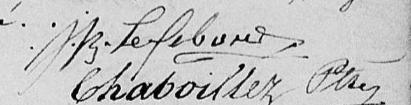 J. Bt. Lefebvre
Chaboillez Ptre